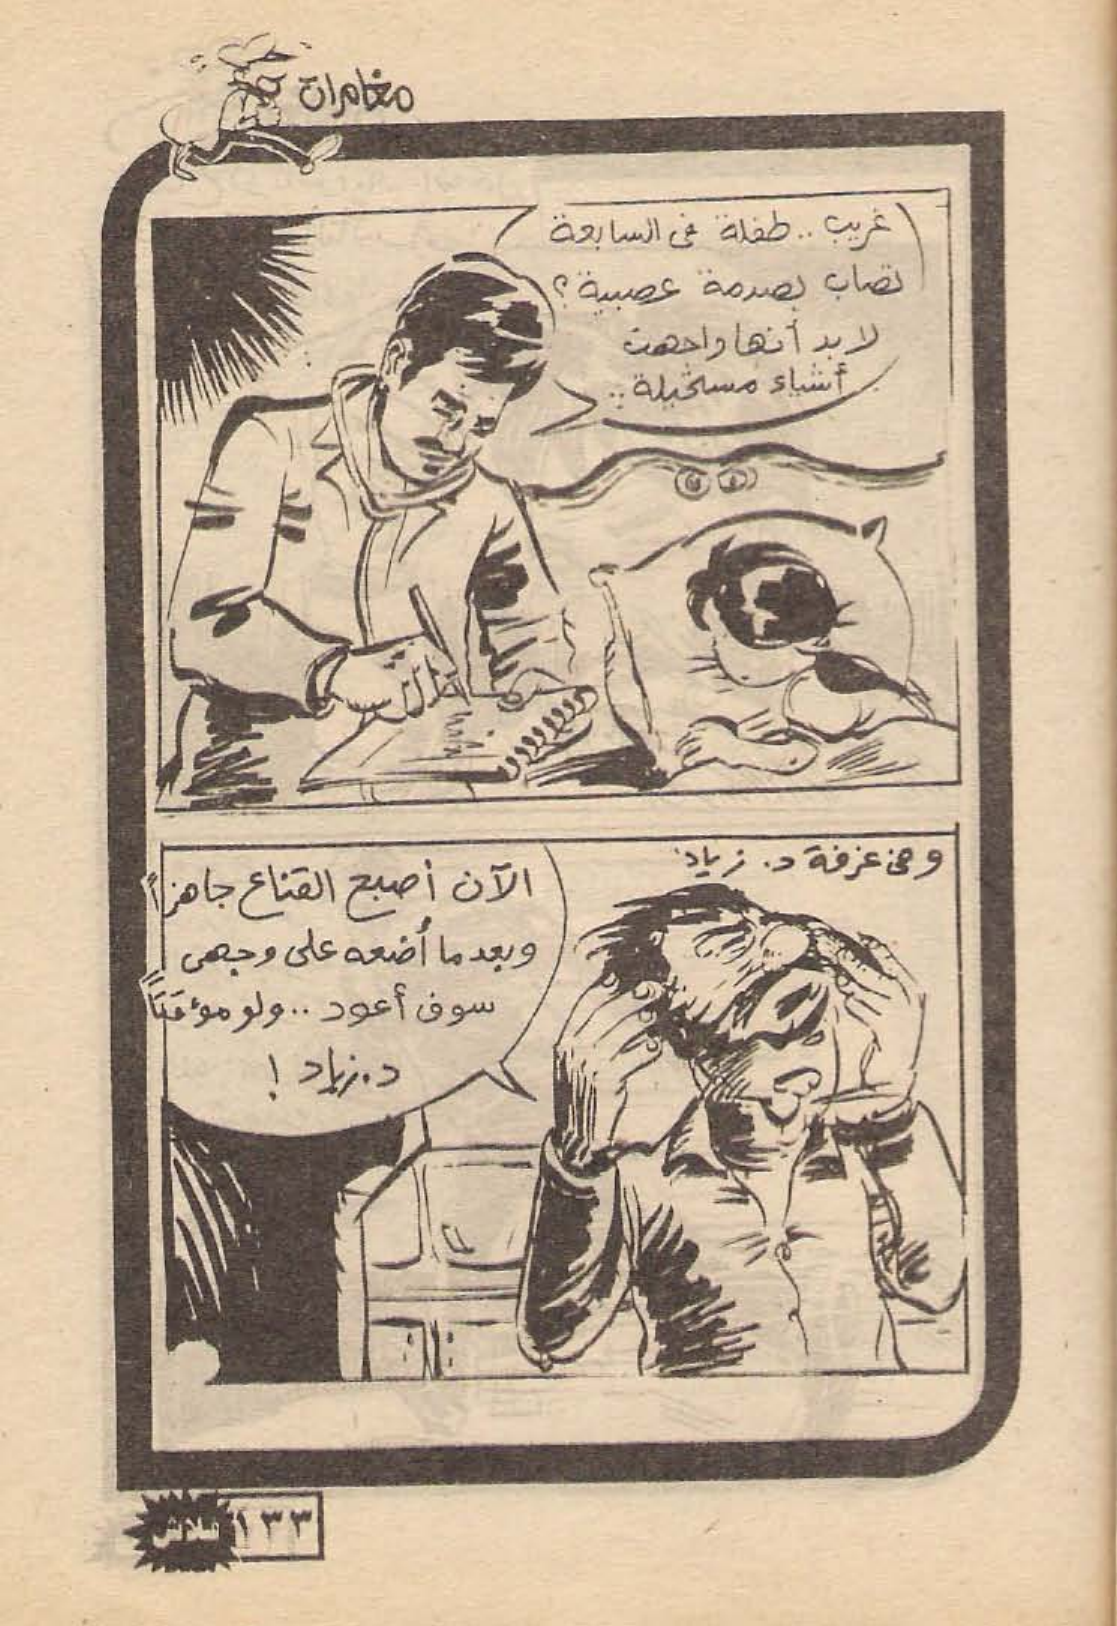 مغامرات
غريب .. طفلة فى السابعة
تصاب بصدمة عصبية ؟
لا بد أنها واجهت
أشياء مستحيلة ..
وفى غرفة د. زياد:
الآن أصبح القناع جاهزاً
وبعد ما أضعه على وجهى
سوف أعود .. ولو مؤقتاً
د. زياد !
فلاش ١٣٣